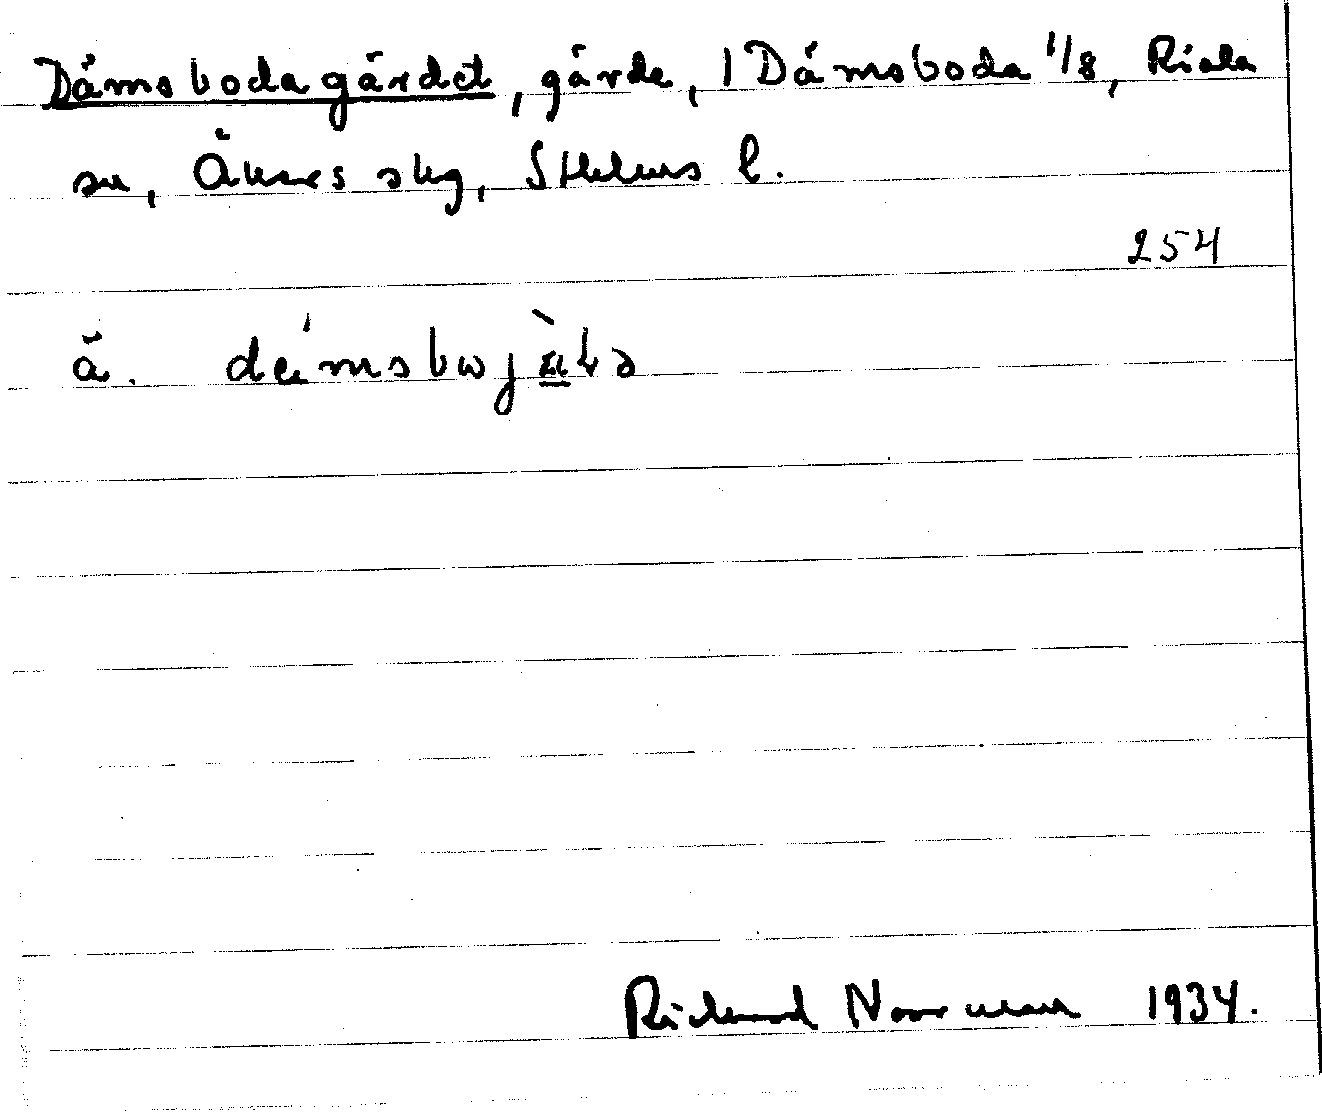 Dámsbodagärdet, gärde, 1 Dámsboda 1/8, Riala
sn, Åkers skg, Sthlms l.
254
å.
Rickard Norrman 1934.